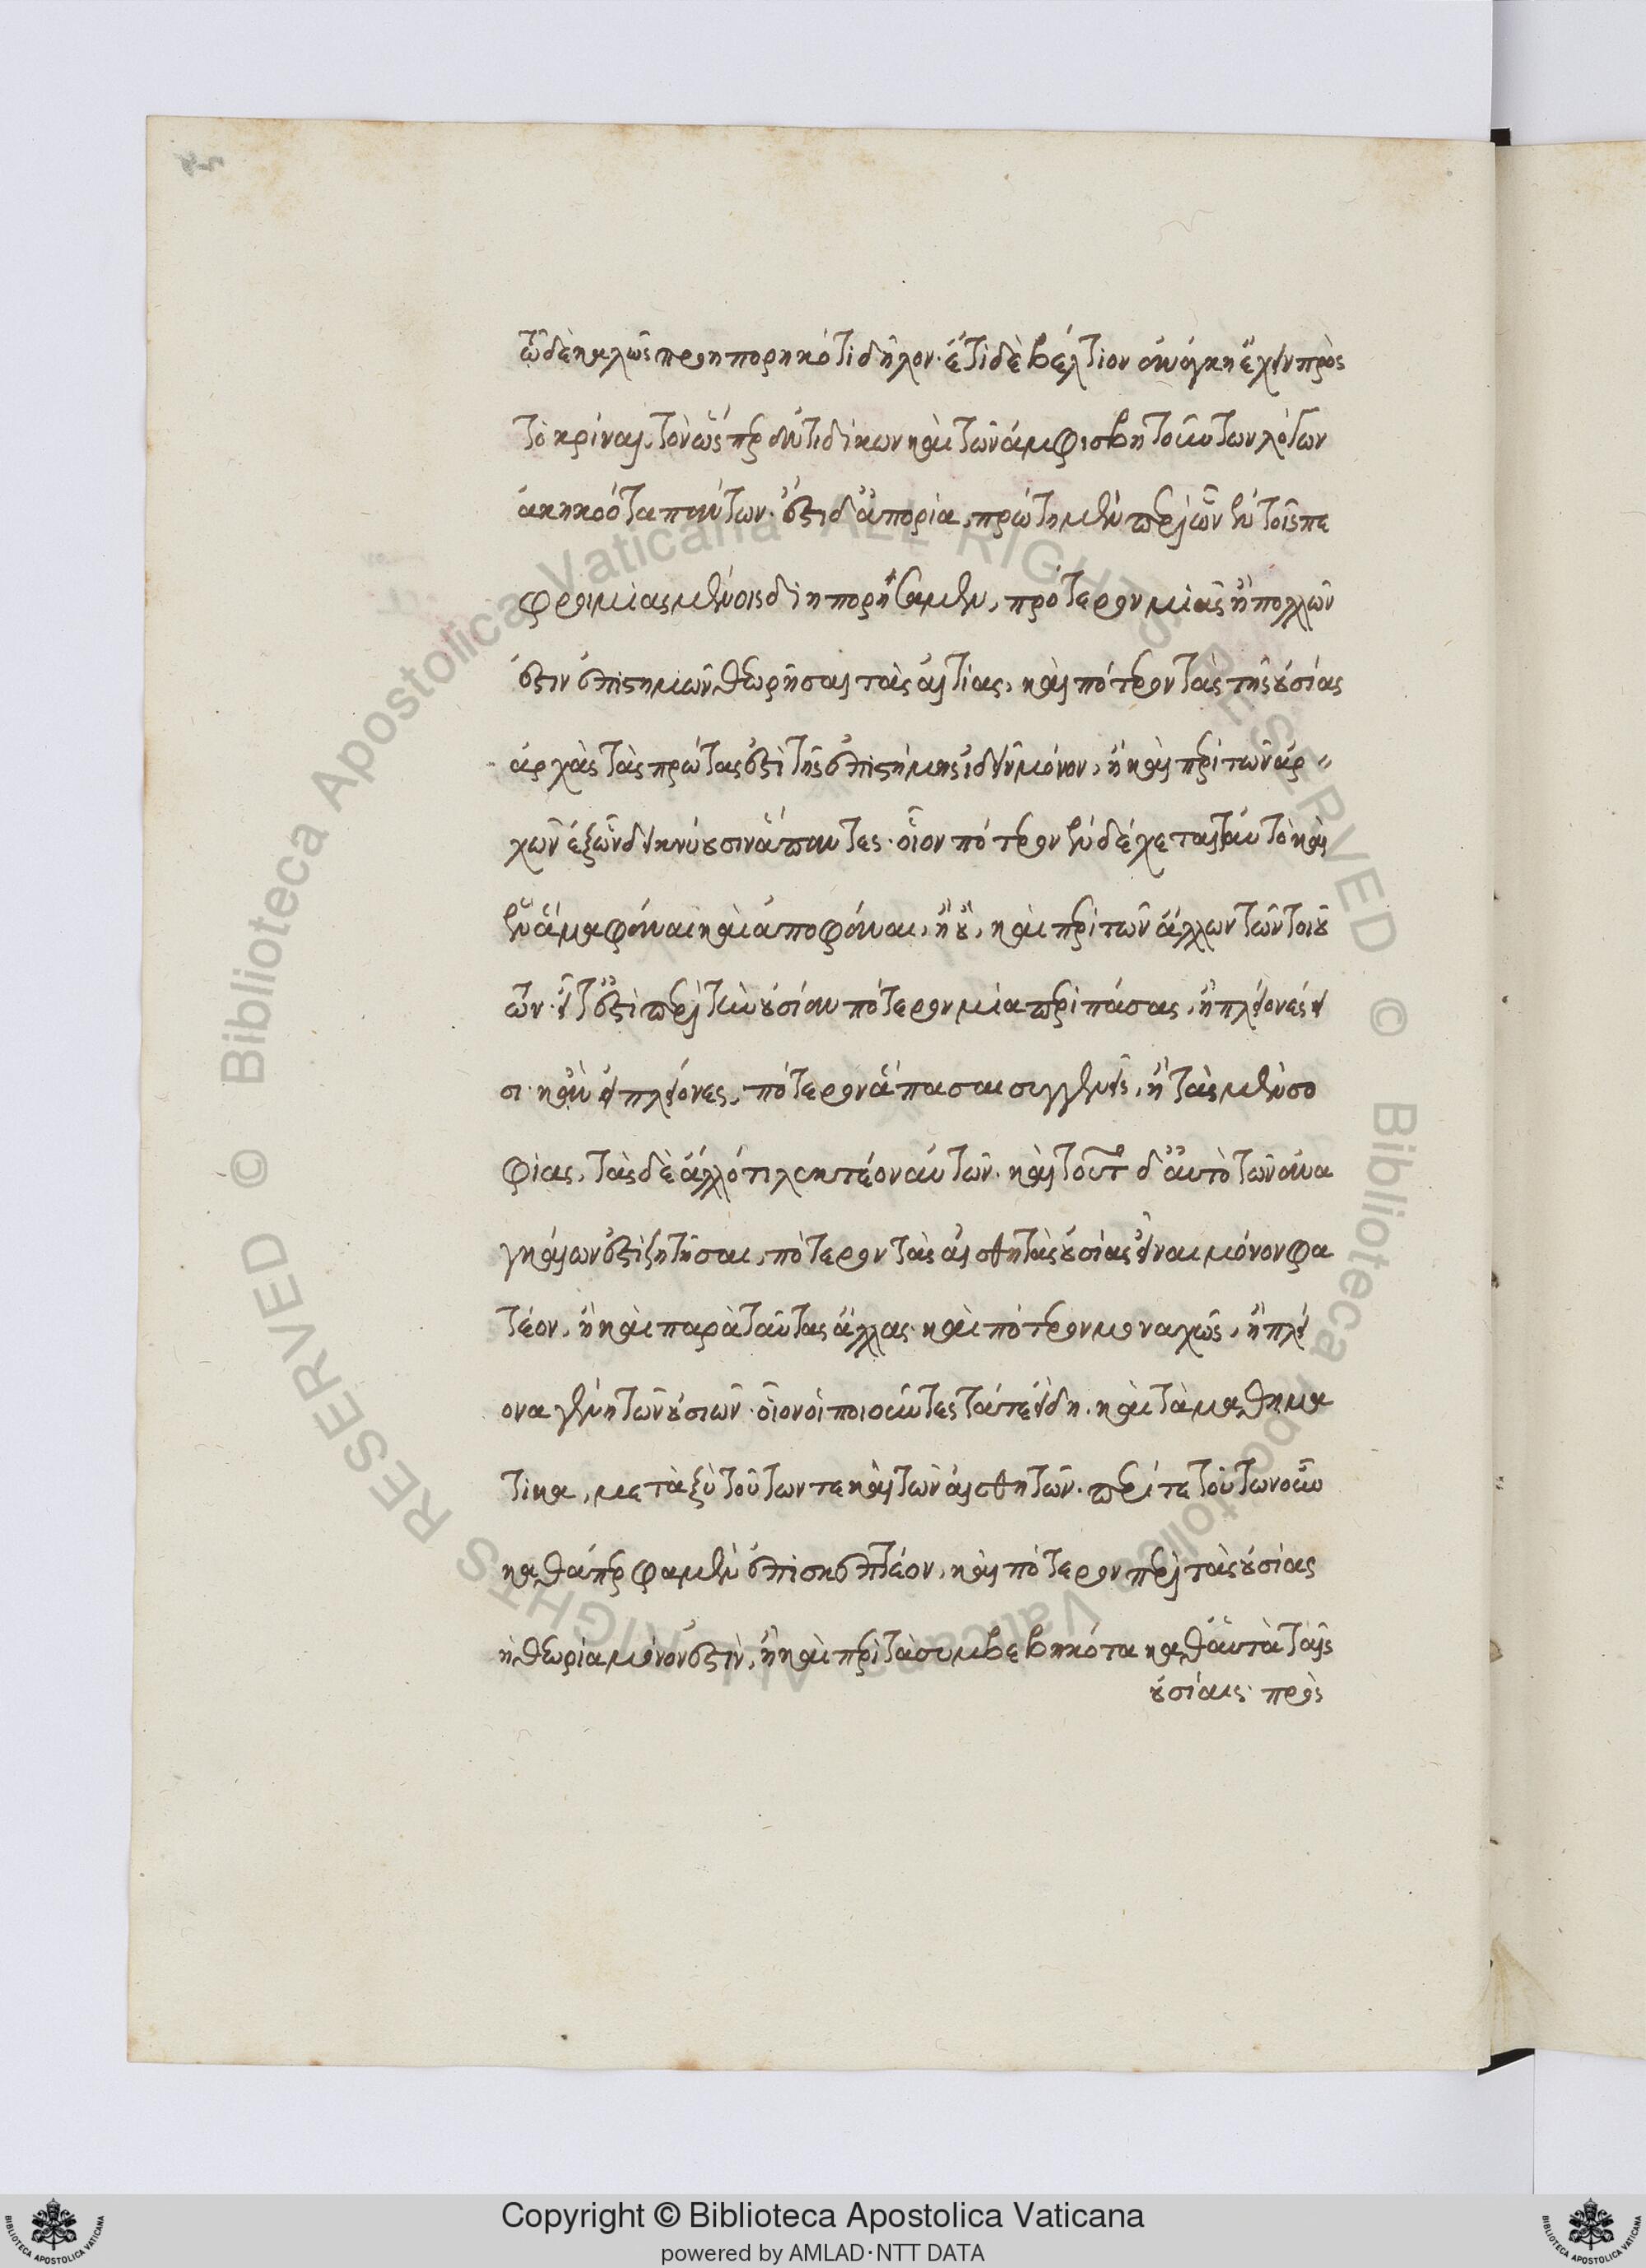 τῷ δὲ καλῶς προηπορηκότι δῆλον· ἔτι δὲ βέλτιον ἀνάγκη ἔχειν πρὸς
τὸ κρῖναι, τὸν ὥσπερ ἀντιδίκων καὶ τῶν ἀμφισβητούντων λόγων
ἀκηκοότα πάντων· ἔστι δ' ἀπορία, πρώτη μὲν περὶ ὧν ἐν τοῖς πε
φροιμιασμένοις διηπορήσαμεν, πρότερον μιᾶς ἢ πολλῶν
ἐστὶν ἐπιστημῶν θεωρῆσαι τὰς αἰτίας, καὶ πότερον τὰς τῆς οὐσίας
ἀρχὰς τὰς πρώτας ἐστὶ τῆς ἐπιστήμης ἰδεῖν μόνον, ἢ καὶ περὶ τῶν ἀρ
χῶν ἐξ ὧν δεικνύουσιν ἅπαντες· οἷον πότερον ἐνδέχεται ταυτὸ καὶ
ἓν ἅμα φάναι καὶ ἀποφάναι, ἢ οὔ, καὶ περὶ τῶν ἄλλων τῶν τοιού
των· εἴ τ' ἐστὶ περὶ τὴν οὐσίαν πότερον μία περὶ πάσας, ἢ πλείονές εἰ
σι· κἂν εἰ πλείονες, πότερον ἅπασαι συγγενεῖς, ἢ τὰς μὲν σο
φίας, τὰς δὲ ἄλλό τι λεκτέον αὐτῶν· καὶ τοῦτο δ' αὐτὸ τῶν ἀνα
γκαίων ἐστὶ ζητῆσαι, πότερον τὰς αἰσθητὰς οὐσίας εἶναι μόνον φα
τέον, ἢ καὶ παρὰ ταύτας ἄλλας· καὶ πότερον μοναχῶς, ἢ πλεί
ονα γένη τῶν οὐσιῶν· οἷον οἱ ποιοῦντες τά τε εἴδη. καὶ τὰ μαθημα
τικα, μεταξὺ τούτων τε καὶ τῶν αἰσθητῶν· περί τε τούτων οὖν
καθάπερ φαμὲν ἐπισκεπτέον, καὶ πότερον περὶ τὰς οὐσίας
ἡ θεωρία μόνον ἐστὶν, ἢ καὶ περὶ τὰ συμβεβηκότα καθ' αὑτὰ ταῖς
οὐσίαις· πρὸς
© Biblioteca Apostolica Vaticana ALL RIGHTS RESERVED © Biblioteca Apostolica Vaticana ALL RIGHTS RESERVED
Copyright © Biblioteca Apostolica Vaticana
powered by AMLAD·NTT DATA